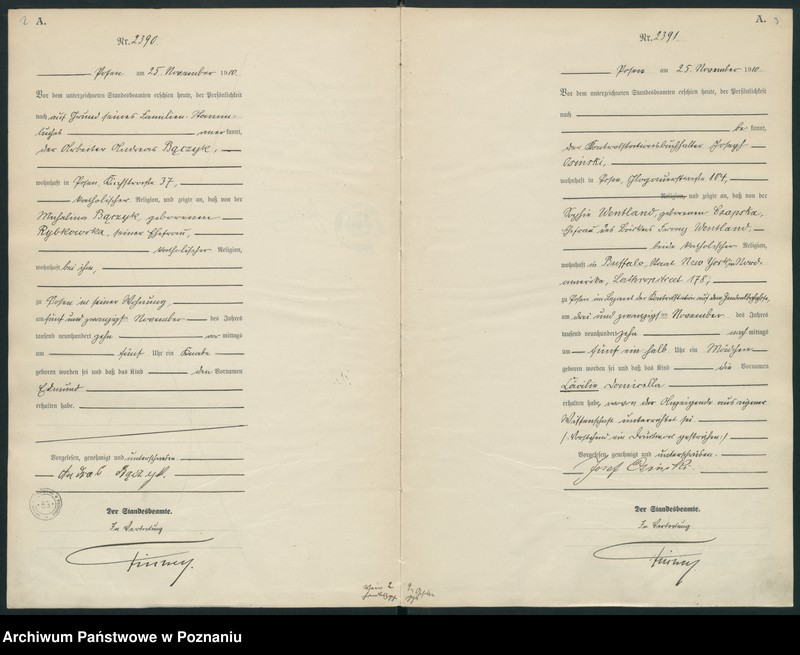 A.
Nr. 2390.
Posen am 25. November 1910.
Vor dem unterzeichneten Standesbeamten erschien heute, der Persönlichkeit
nach auf Grund seines Familien-Stamm-
buches anerkannt,
der Arbeiter Andreas Bączyk,
wohnhaft in Posen, 37,
katholischer Religion, und zeigte an, daß von der
Michalina Bączyk, geborenen
Rybkowska, seiner Ehefrau,
katholischer Religion,
wohnhaft bei ihm,
zu Posen in seiner Wohnung,
am fünf und zwanzigsten November des Jahres
tausend neunhundert zehn vormittags
um fünf Uhr ein Knabe
geboren worden sei und daß das Kind den Vornamen
Edmund
erhalten habe.
Vorgelesen, genehmigt und unterschrieben
Bączyk.
Der Standesbeamte.
In Vertretung
A.
3
Nr. 2391.
Posen am 25. November 1910.
Vor dem unterzeichneten Standesbeamten erschien heute, der Persönlichkeit
nach
bekannt,
der Joseph
Osinski,
wohnhaft in Posen, Glogauerstrasse 104,
Religion, und zeigte an, daß von der
Sophie Wentland, geborenen Czapska,
Ehefrau des Franz Wentland,
beide katholischer Religion,
wohnhaft in Buffalo, Staat New York in Nord-
amerika, Lathropstreet 178,
zu Posen im
am drei und zwanzigsten November des Jahres
tausend neunhundert zehn nachmittags
um fünf ein halb Uhr ein Mädchen
geboren worden sei und daß das Kind die Vornamen
Cäcilie Domicella
erhalten habe, wovon der Anzeigende aus eigener
Wissenschaft unterrichtet sei
(Vorstehend ein Druckwort gestrichen.)
Vorgelesen, genehmigt und unterschrieben.
Josef Osinski.
Der Standesbeamte.
In Vertretung
Archiwum Państwowe w Poznaniu